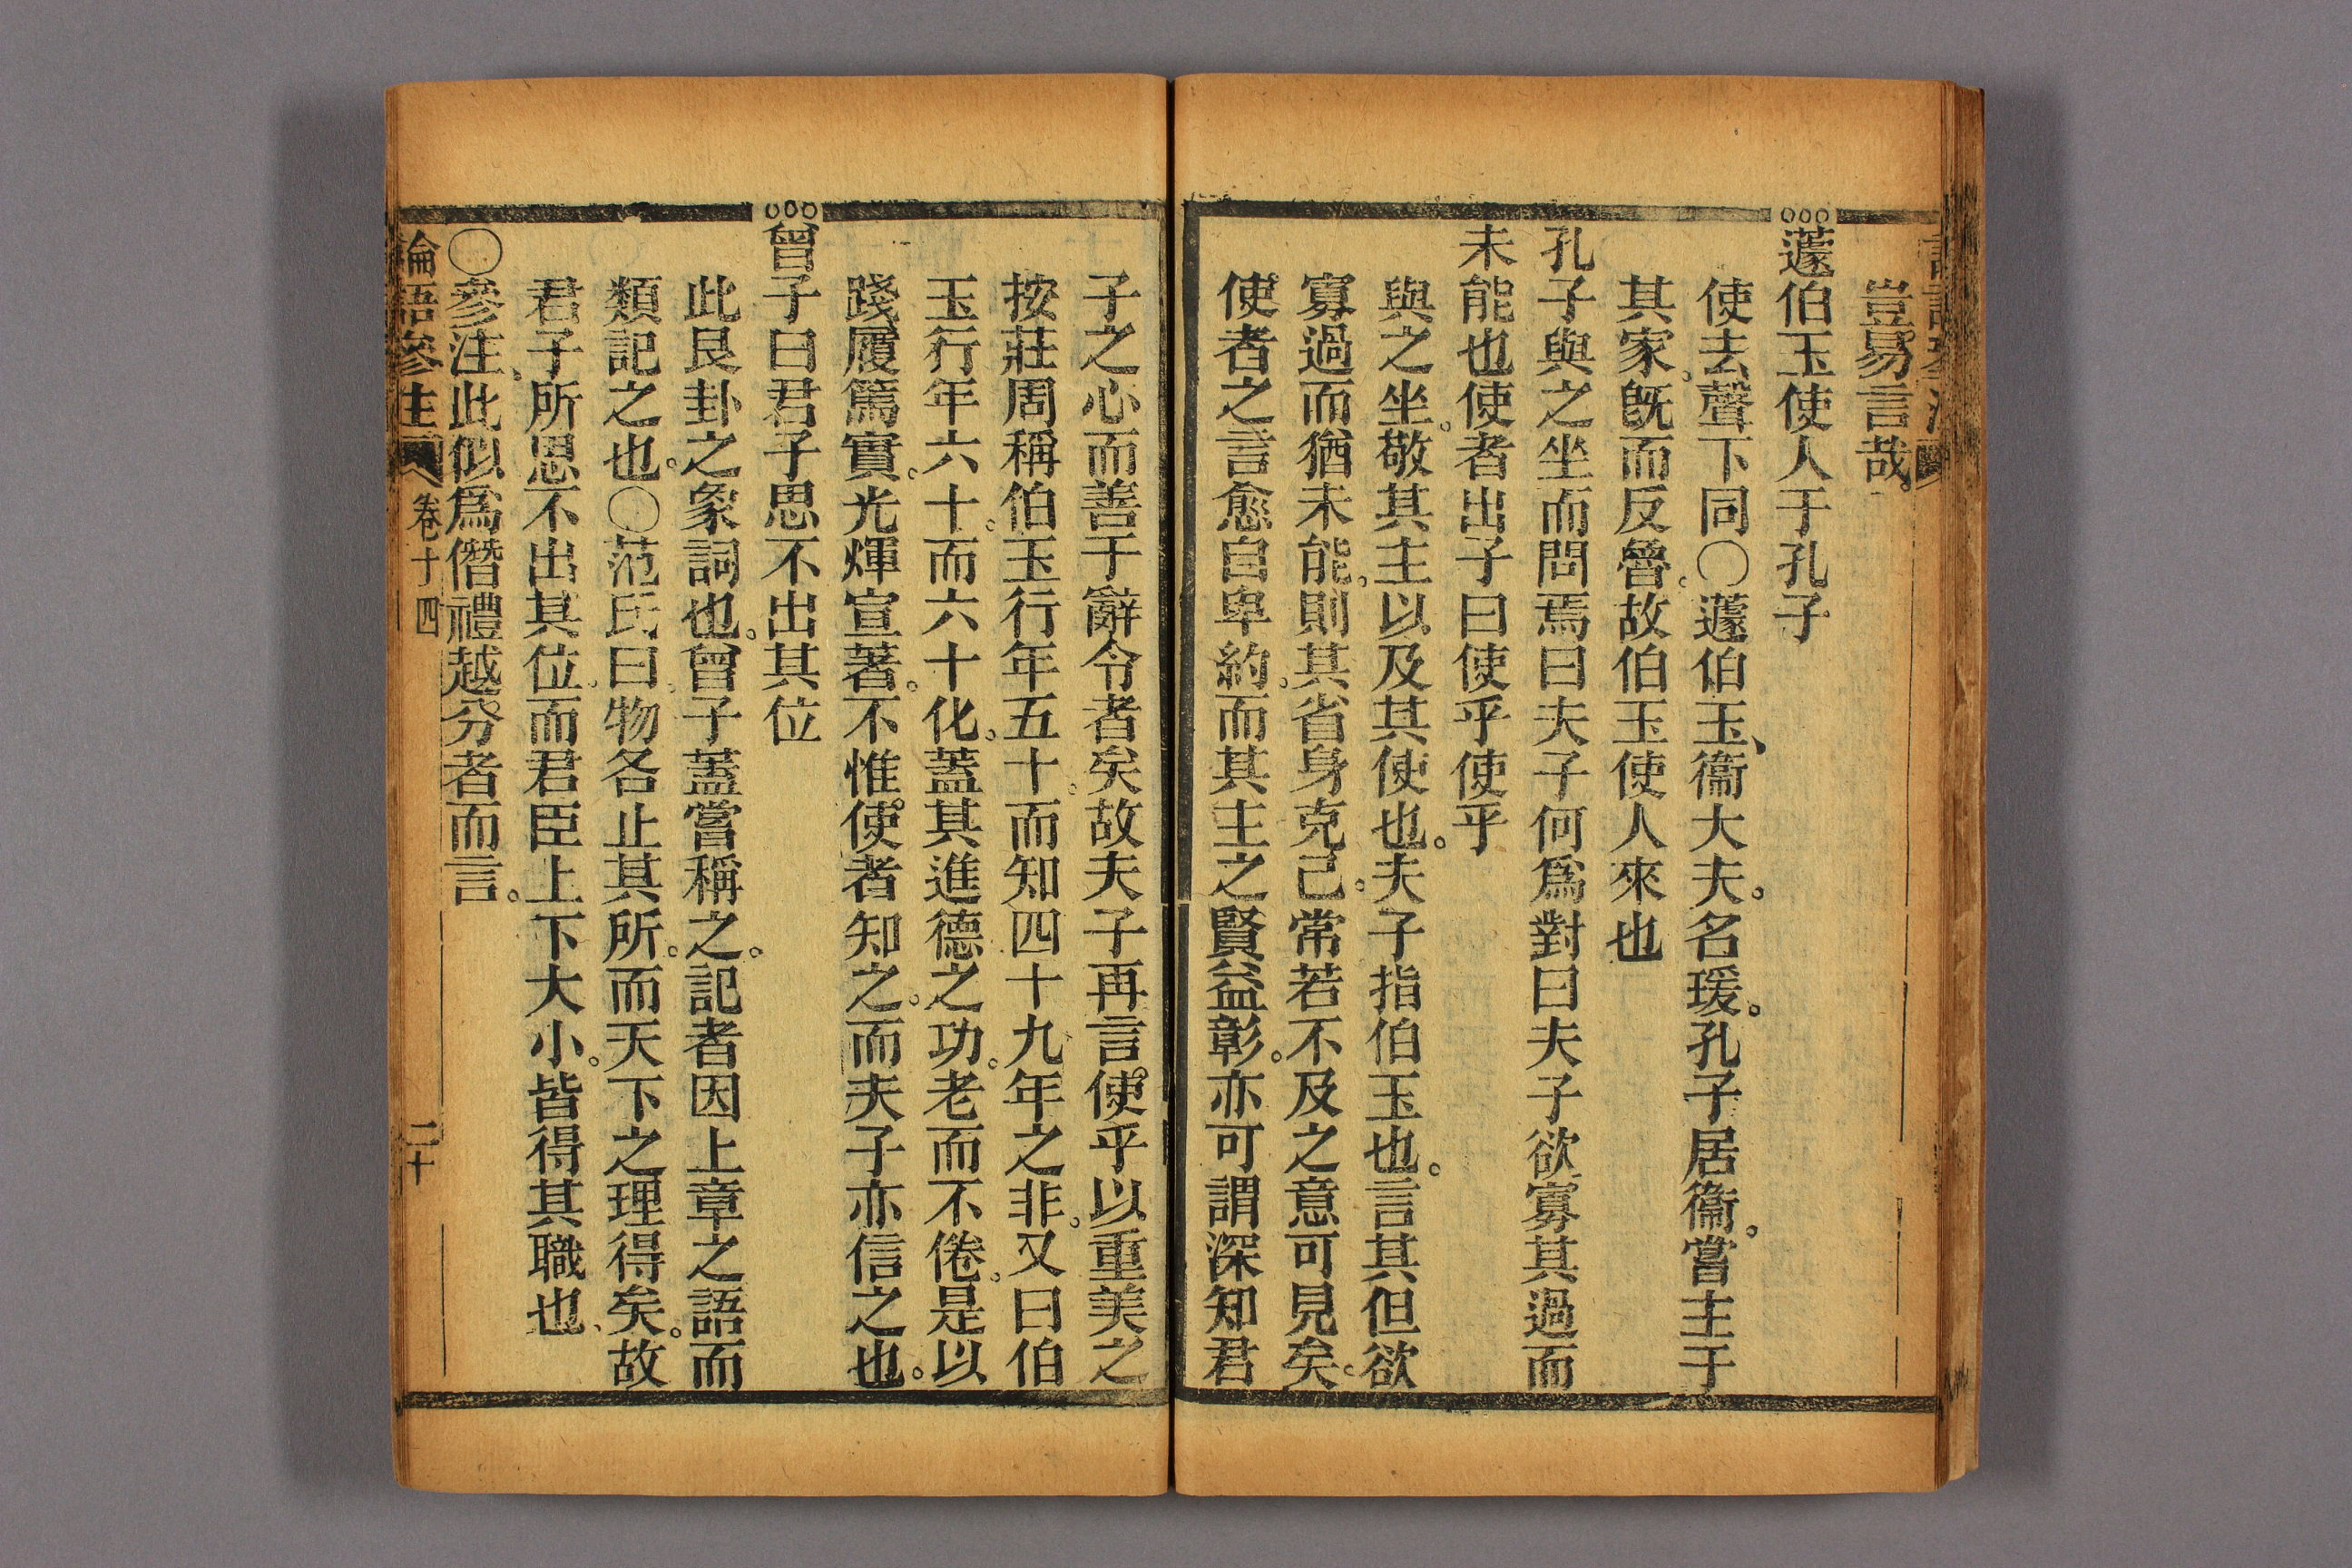 豈易言哉。
蘧伯玉使人于孔子
使去聲下同〇蘧伯玉、衞大夫。名瑗。孔子居衞。嘗主于
其家。旣而反魯。故伯玉使人來也
孔子與之坐而問焉曰夫子何爲對曰夫子欲寡其過而
未能也使者出子曰使乎使乎
與之坐。敬其主以及其使也。夫子指伯玉也。言其但欲
寡過而猶未能。則其省身克己。常若不及之意可見矣。
使者之言愈自卑約。而其主之賢益彰。亦可謂深知君
子之心而善于辭令者矣故夫子再言。使乎以重美之
按莊周稱伯玉行年五十。而知四十九年之非。又曰伯
玉行年六十。而六十化。蓋其進德之功。老而不倦。是以
踐履篤實。光煇宣著。不惟使者知之。而夫子亦信之也。
曾子曰君子思不出其位
此艮卦之象詞也。曾子蓋嘗稱之。記者因上章之語而
類記之也。〇范氏曰。物各止其所。而天下之理得矣。故
君子所思不出其位。而君臣上下大小。皆得其職也、
〇參注。此似爲僭禮越分者而言。
論語參注 卷十四 二十